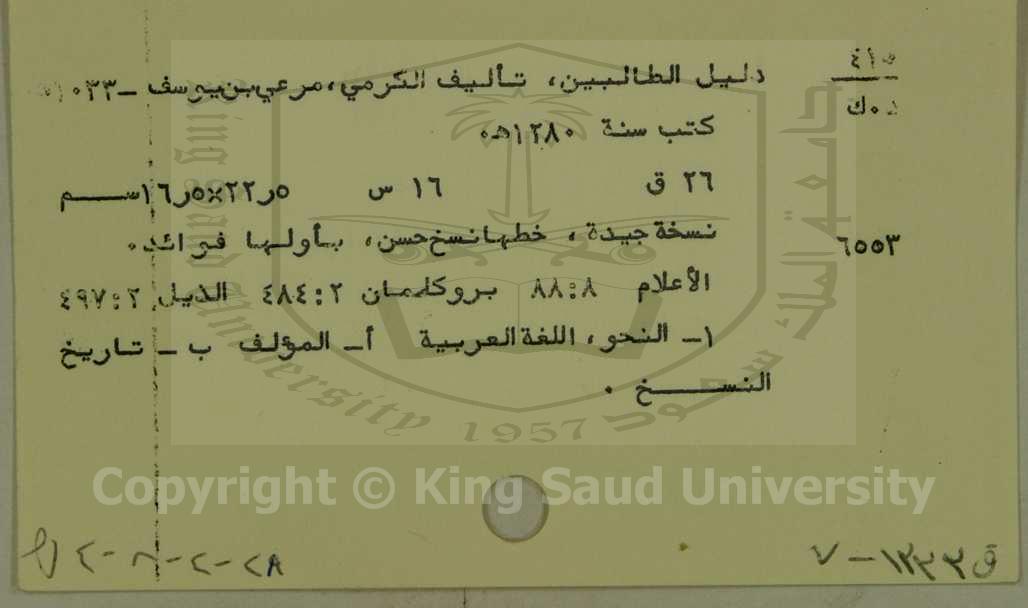 ٤١٥
د٠ك
دليل الطالبين، تأليف الكرمي، مرعي بن يوسف -١٠٣٣هـ
كتب سنة ١٢٨٠هـ.
٢٦ ق ١٦ س ٢٢٫٥×١٦٫٥ســم
٦٥٥٣
نسخة جيدة، خطها نسخ حسن، بأولها فوائد.
الأعلام ٨:٨٨ بروكلمان ٢:٤٨٤ الذيل ٢:٤٩٧
١- النحو، اللغة العربية أ- المؤلف ب- تاريخ
النســـخ .
1957
Copyright © King Saud University
ق ١٣٣٣ - ٧